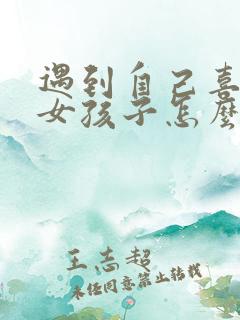 遇到自己喜
女孩子怎麼
王志超
未经同意禁止转载